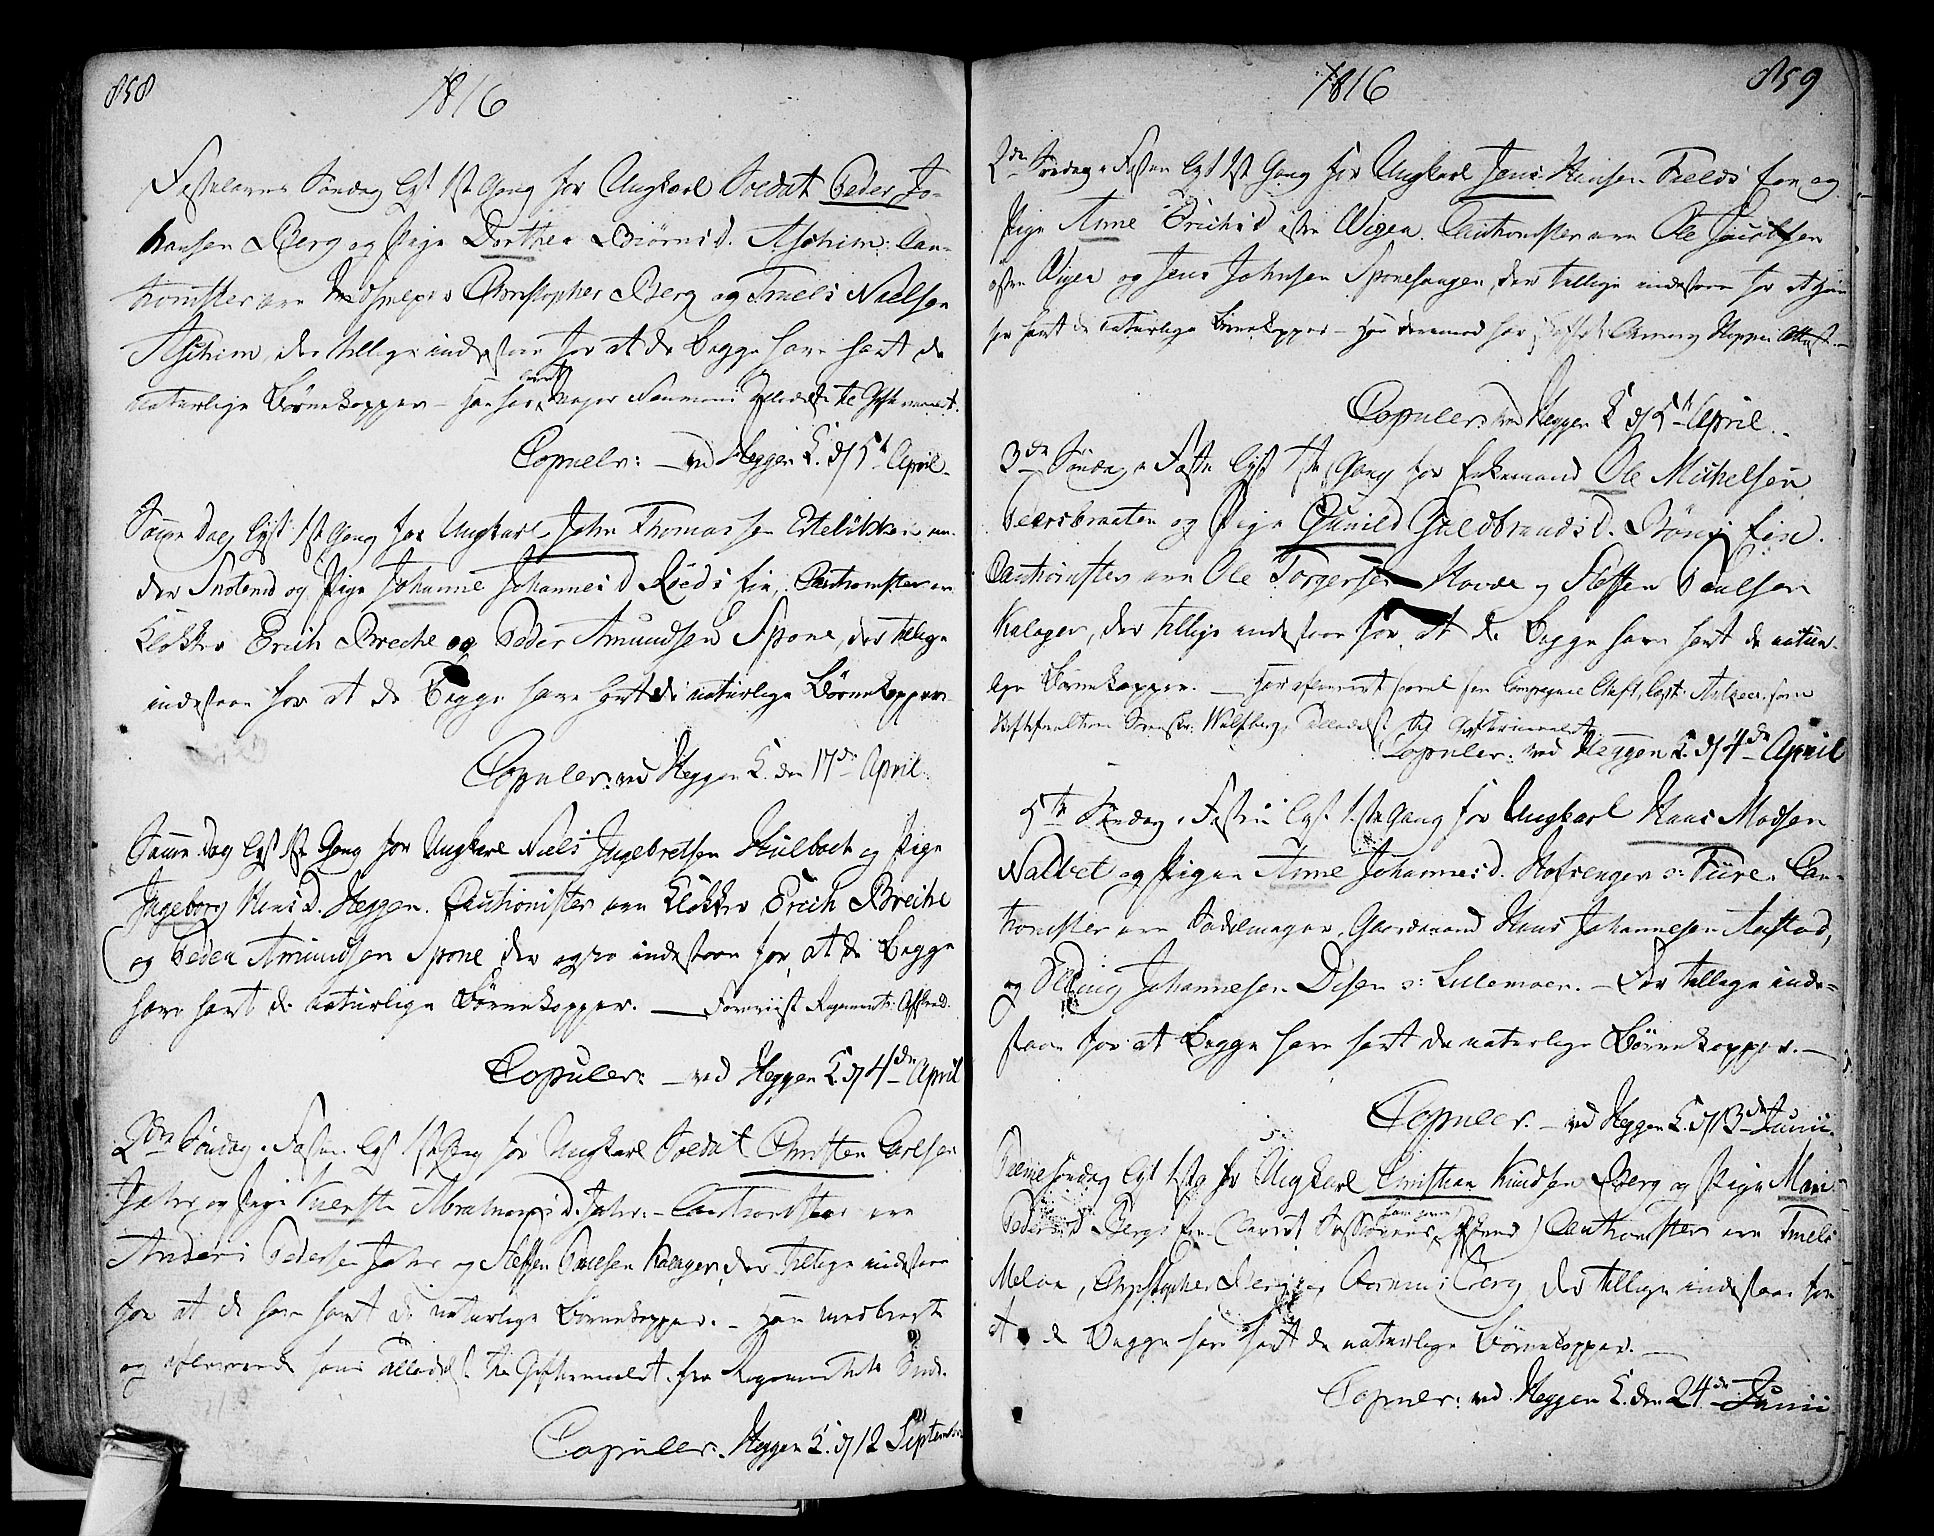 858
1816
Fastelavns Søndag lyst 1ste Gang for Ungkarl Soldat Peder Jo-
hansen Berg og Pige Dorthea Biørnsd. Aschim: Cau-
tionister ere Christopher Berg og Truels Nielsen
Aschim, der tillige indestaae for at de begge have havt de
naturlige Børnekopper – Han har Major Naumans Tilladelse til Giftermaalet.
Copuler: – ved Heggen K. d 5te April.
Samme Dag lyst 1ste Gang for Ungkarl John Thomassen Ettelikken un-
der Snolerud og Pige Johanne Johannesd Røeds Eie, Cautionister ere
Klokker Erich Breche og Peder Amundsen Spone, der tillige
indestaae for at de Begge have havt de naturlige Børnekopper
Copuler: ved Heggen K. den 17de April.
Samme Dag lyst 1ste Gang for Ungkarl Niels Ingebretsen Hulbach og Pige
Ingeborg Hansd. Heggen. Cautionister ere Klokker Erich Breche
og Peder Amundsen Spone der ogsaa indestaae for, at de Begge
have havt de naturlige Børnekopper. – Foreviist Regiments Afskeed.
Copuler: – ved Heggen K. d 4de April
2den Søndag i Fasten lyst 1ste Gang for Ungkarl Soldat Christen Carlsen
Jahr og Pige Kiersti Abrahamsd. Jahr: – Cautionister ere
Anders Pedersen Jahr og Steffen Poulsen Kalager, der tillige indestaae
for at de have havt de naturlige Børnekopper. – Han medbragte
og afleverede sin Tilladelse til Giftermaalet fra Regimentet
Copuler. Heggen K. d 12 September
1816
859
2den Søndag i Fasten lyst 1ste Gang for Ungkarl Jens Hansen Fields Eie og
Pige Anne Erichsd østre Vigen. Cautionister ere Ole Jacobsen
østre Vigen og Jens Johnsen Sponehaugen, der tillige indestaae for at
har havt de naturlige Børnekopper – Han derimod har
Copuler: ved Heggen K d 5te April.
3de Søndag i Faste lyst 1ste Gang for Enkemand Ole Michelsen
Peersbraaten og Pige Gunild Guldbrandsd. Bøns Eie.
Cautionister ere Ole Torgersen Hovde og Steffen Paulsen
Kalager, der tillige indestaae for, at de Begge have havt de natur-
lige Børnekopper. – Han afleverede saavel sin Compagnie Chef, som
Tilladelse til Giftermaalet
Copuler: ved Heggen K. d 4de April
5te Søndag i Fasten lyst 1ste Gang for Ungkarl Hans Madsen
Nalvet og Pigen Anne Johannesd. Hofsengen o: Fure. Cau-
tionister ere Sadelmager, Gaardmand Hans Johannesen Aastad,
og Elling Johannesen Disen o: Lillemoen. – Der tillige inde-
staae for at Begge have havt de naturlige Børnekopper. –
Copuler. – ved Heggen K. d 13de Junii.
Palmesøndag lyst 1ste G for Ungkarl Christian Knudsen Berg og Pige Marie
Pedersd Bergs Eie Cautionister ere Truels
Melan, Christopher Berg og Berg, der tillige indestaae for
at de Begge have havt de naturlige Børnekopper. –
Copuler: ved Heggen K. den 24de Junii